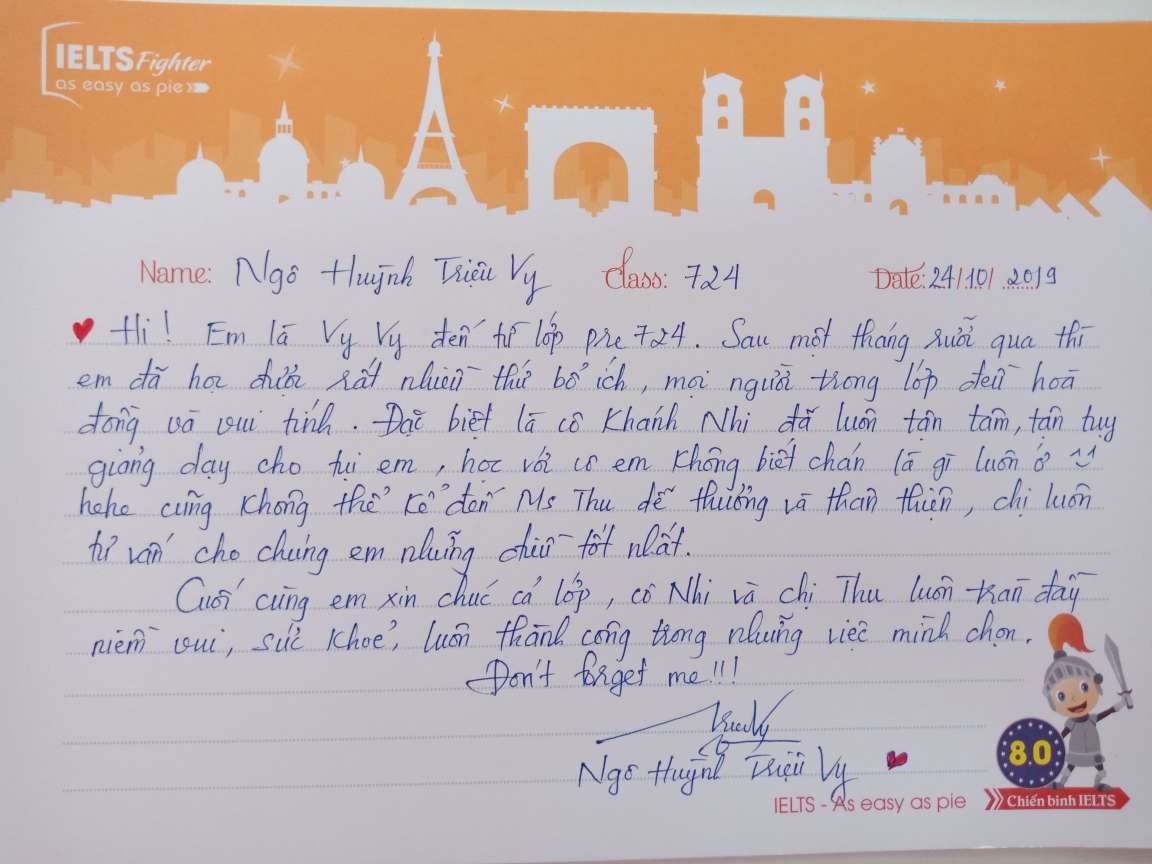 IELTS Fighter
as easy as pie
Name: Ngô Huỳnh Triệu Vy Class: 724 Date: 24/10/2019
Hi! Em là Vy Vy đến từ lớp pre 724. Sau một tháng rưỡi qua thì
em đã học được rất nhiều thứ bổ ích, mọi người trong lớp đều hoà
đồng và vui tính. Đặc biệt là cô Khánh Nhi đã luôn tận tâm, tận tụy
giảng dạy cho tụi em, học với cô em không biết chán là gì luôn ớ ^^
hehe cũng không thể kể đến Ms Thu dễ thương và thân thiện, chị luôn
tư vấn cho chúng em những điều tốt nhất.
Cuối cùng em xin chúc cả lớp, cô Nhi và chị Thu luôn tràn đầy
niềm vui, sức khoẻ, luôn thành công trong những việc mình chọn.
Don't forget me!!!
Ngô Huỳnh Triệu Vy
8.0
IELTS - As easy as pie
Chiến binh IELTS